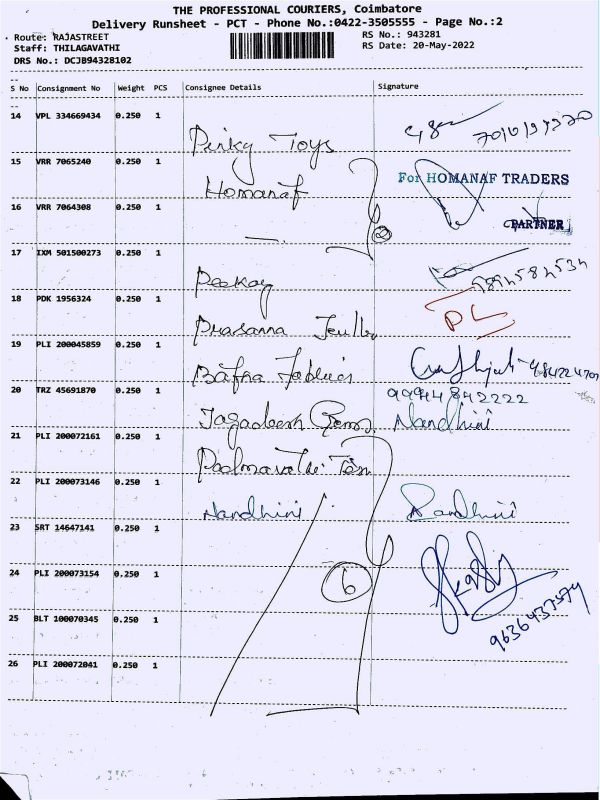 THE PROFESSIONAL COURIERS, Coimbatore
Delivery Runsheet - PCT - Phone No.:0422-3505555 - Page No.:2
Route: RAJASTREET
RS No.: 943281
Staff: THILAGAVATHI
RS Date: 20-May-2022
DRS No.: DCJB94328102
S No Consignment No Weight PCS Consignee Details Signature
14 VPL 334669434 0.250 1
Pinky Toys
15 VRR 7065240 0.250 1
Homanaf
For HOMANAF TRADERS
16 VRR 7064308 0.250 1
2
PARTNER
17 IXM 501500273 0.250 1
Peekay
18 PDK 1956324 0.250 1
Prasanna
19 PLI 200045859 0.250 1
Bafna
20 TRZ 45691870 0.250 1
99944842222
Jagadeesh Gems Nandhini
21 PLI 200072161 0.250 1
22 PLI 200073146 0.250 1
Nandhini Nandhini
23 SRT 14647141 0.250 1
24 PLI 200073154 0.250 1
6
25 BLT 100070345 0.250 1
26 PLI 200072041 0.250 1